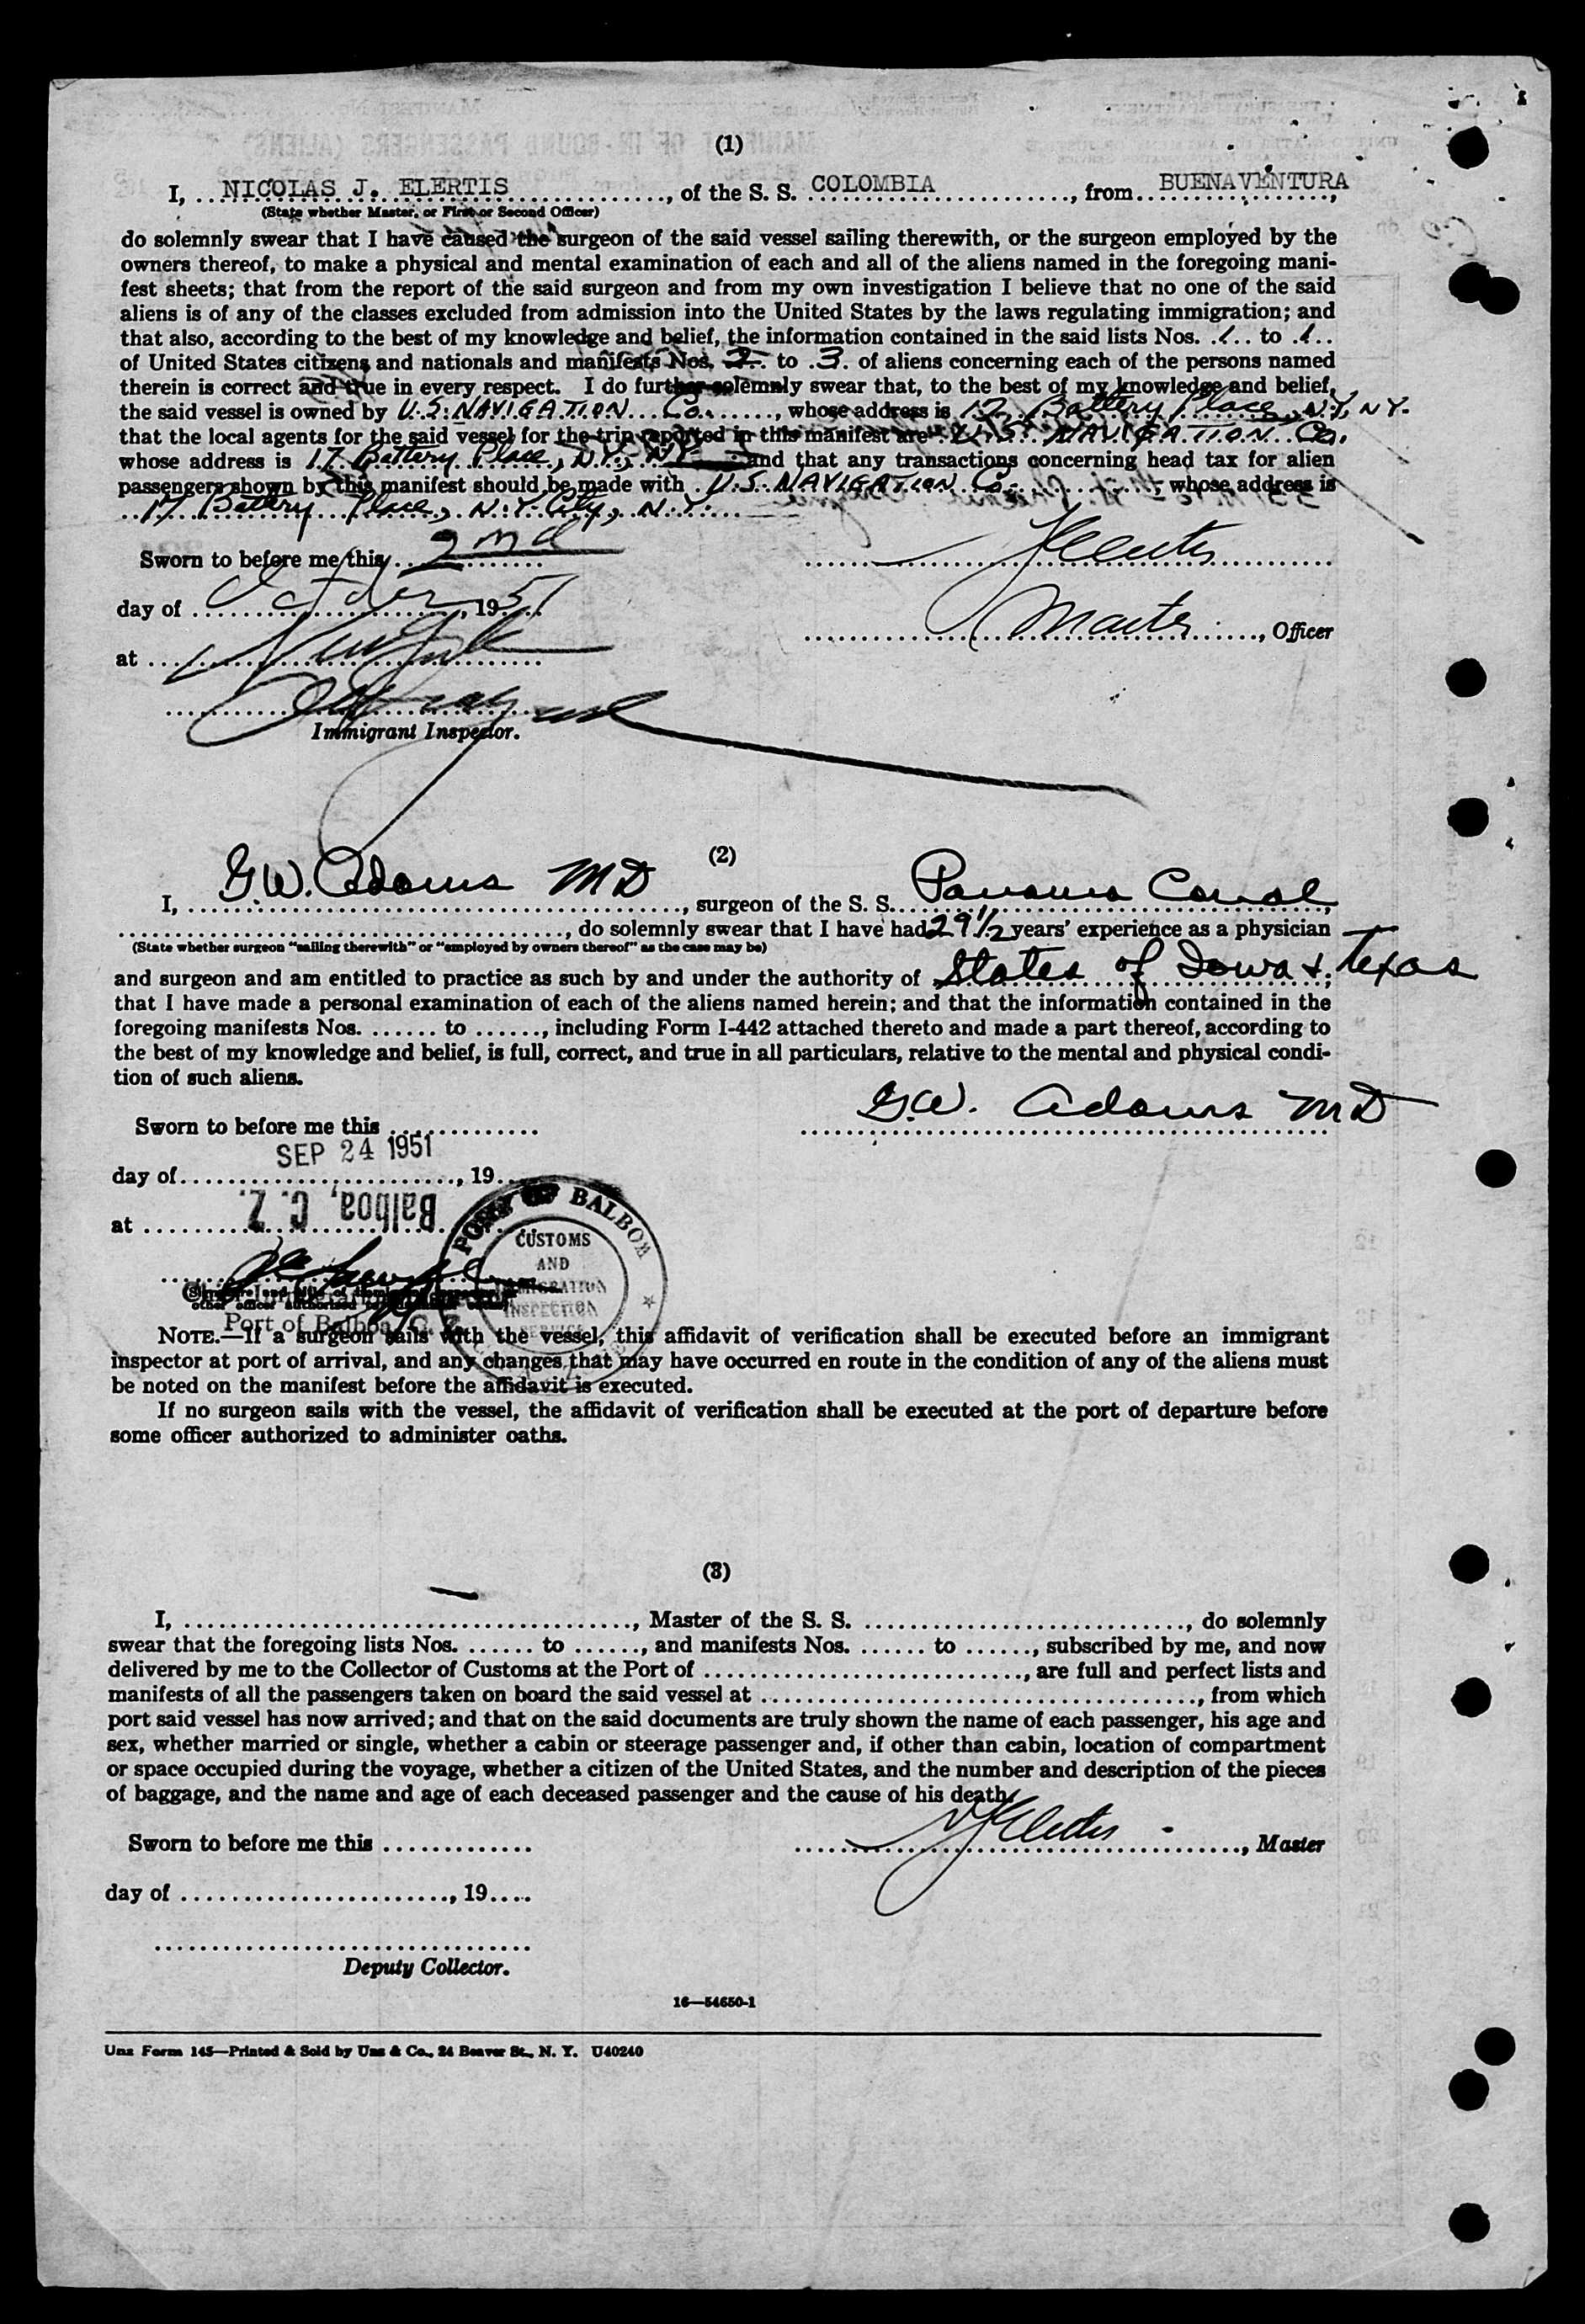 (1)
I, NICOLAS J. ELERTIS, of the S. S. COLOMBIA, from BUENAVENTURA,
(State whether Master, or First or Second Officer)
do solemnly swear that I have caused the surgeon of the said vessel sailing therewith, or the surgeon employed by the
owners thereof, to make a physical and mental examination of each and all of the aliens named in the foregoing mani-
fest sheets; that from the report of the said surgeon and from my own investigation I believe that no one of the said
aliens is of any of the classes excluded from admission into the United States by the laws regulating immigration; and
that also, according to the best of my knowledge and belief, the information contained in the said lists Nos. 1 to 1
of United States citizens and nationals and manifests Nos. 2 to 3 of aliens concerning each of the persons named
therein is correct and true in every respect. I do further solemnly swear that, to the best of my knowledge and belief,
the said vessel is owned by U.S. NAVIGATION Co., whose address is 17 Battery Place, N.Y., N.Y.
that the local agents for the said vessel for the trip reported in this manifest are U.S. NAVIGATION Co.
whose address is 17 Battery Place, N.Y., N.Y. and that any transactions concerning head tax for alien
passengers shown by this manifest should be made with U.S. NAVIGATION Co., whose address is
17 Battery Place, N.Y. City, N.Y.
Sworn to before me this 2nd
day of October, 1951
Master, Officer
at New York
Immigrant Inspector.
(2)
I, G.W. Adams MD, surgeon of the S. S. Panama Canal,
, do solemnly swear that I have had 29 1/2 years' experience as a physician
(State whether surgeon "sailing therewith" or "employed by owners thereof" as the case may be)
and surgeon and am entitled to practice as such by and under the authority of States of Iowa & Texas;
that I have made a personal examination of each of the aliens named herein; and that the information contained in the
foregoing manifests Nos. ...... to ......, including Form I-442 attached thereto and made a part thereof, according to
the best of my knowledge and belief, is full, correct, and true in all particulars, relative to the mental and physical condi-
tion of such aliens.
G.W. Adams MD
Sworn to before me this
SEP 24 1951
day of ........, 19
at Balboa, C. Z.
PORT OF BALBOA
CUSTOMS
AND
IMMIGRATION
INSPECTION
SERVICE
Port of Balboa, C. Z.
NOTE.—If a surgeon sails with the vessel, this affidavit of verification shall be executed before an immigrant
inspector at port of arrival, and any changes that may have occurred en route in the condition of any of the aliens must
be noted on the manifest before the affidavit is executed.
If no surgeon sails with the vessel, the affidavit of verification shall be executed at the port of departure before
some officer authorized to administer oaths.
(3)
I, ........, Master of the S. S. ........, do solemnly
swear that the foregoing lists Nos. ...... to ......, and manifests Nos. ...... to ......, subscribed by me, and now
delivered by me to the Collector of Customs at the Port of ........, are full and perfect lists and
manifests of all the passengers taken on board the said vessel at ........, from which
port said vessel has now arrived; and that on the said documents are truly shown the name of each passenger, his age and
sex, whether married or single, whether a cabin or steerage passenger and, if other than cabin, location of compartment
or space occupied during the voyage, whether a citizen of the United States, and the number and description of the pieces
of baggage, and the name and age of each deceased passenger and the cause of his death.
Sworn to before me this
, Master
day of ........, 19....
Deputy Collector.
16—54650-1
Unz Form 145—Printed & Sold by Unz & Co., 24 Beaver St., N. Y. U40240